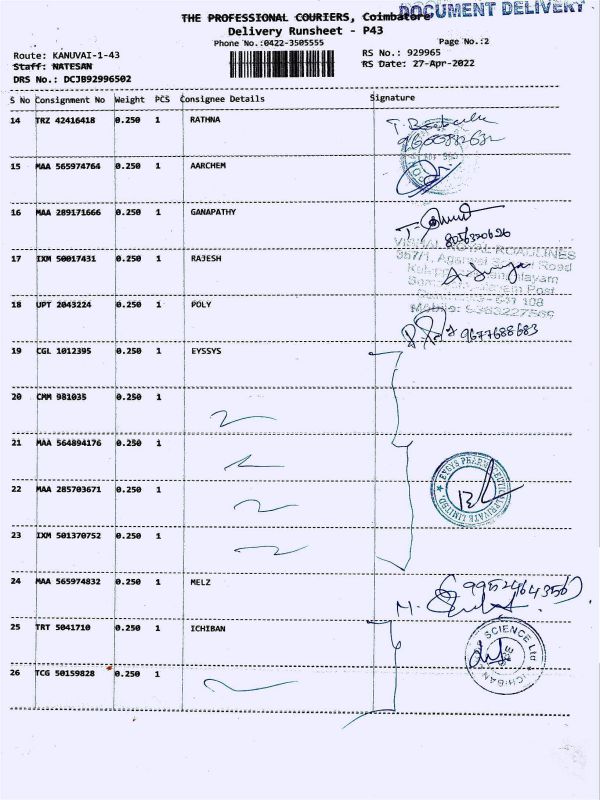 DOCUMENT DELIVERY
THE PROFESSIONAL COURIERS, Coimbatore
Delivery Runsheet - P43
Phone No.:0422-3505555
Page No.:2
Route: KANUVAI-1-43
RS No.: 929965
Staff: NATESAN
RS Date: 27-Apr-2022
DRS No.: DCJB92996502
S No Consignment No Weight PCS Consignee Details Signature
14 TRZ 42416418 0.250 1 RATHNA
15 MAA 565974764 0.250 1 AARCHEM
16 MAA 289171666 0.250 1 GANAPATHY
8056320626
17 IXM 50017431 0.250 1 RAJESH
ROYAL ROADLINES
18 UPT 2043224 0.250 1 POLY
9677688683
19 CGL 1012395 0.250 1 EYSSYS
20 CMM 981035 0.250 1
21 MAA 564894176 0.250 1
22 MAA 285703671 0.250 1
PHARMACEUTICAL PRIVATE LIMITED.
23 IXM 501370752 0.250 1
24 MAA 565974832 0.250 1 MELZ
25 TRT 5041710 0.250 1 ICHIBAN
SCIENCE Ltd
ICHIBAN
26 TCG 50159828 0.250 1